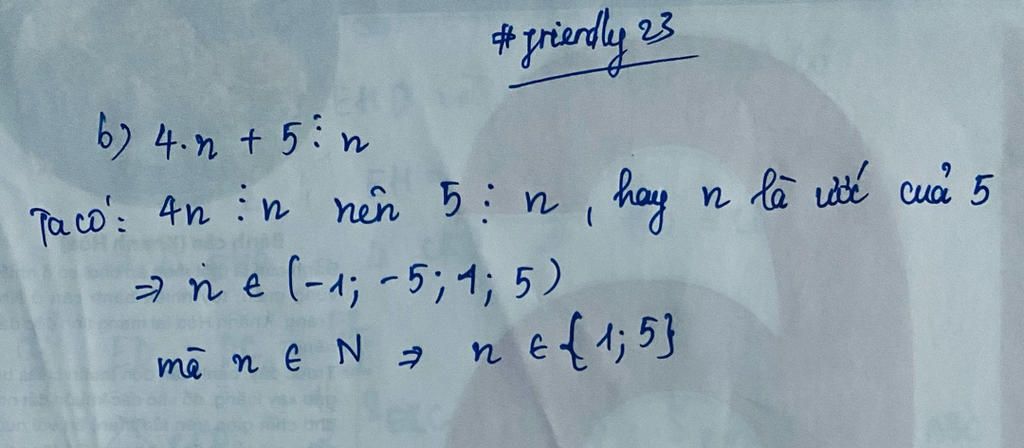 #friendly 23
b) 4.n + 5 ⋮ n
Ta có: 4n ⋮ n nên 5 ⋮ n, hay n là ước cuả 5
⇒ n ∈ (-1; -5; 1; 5)
mà n ∈ N ⇒ n ∈ {1; 5}